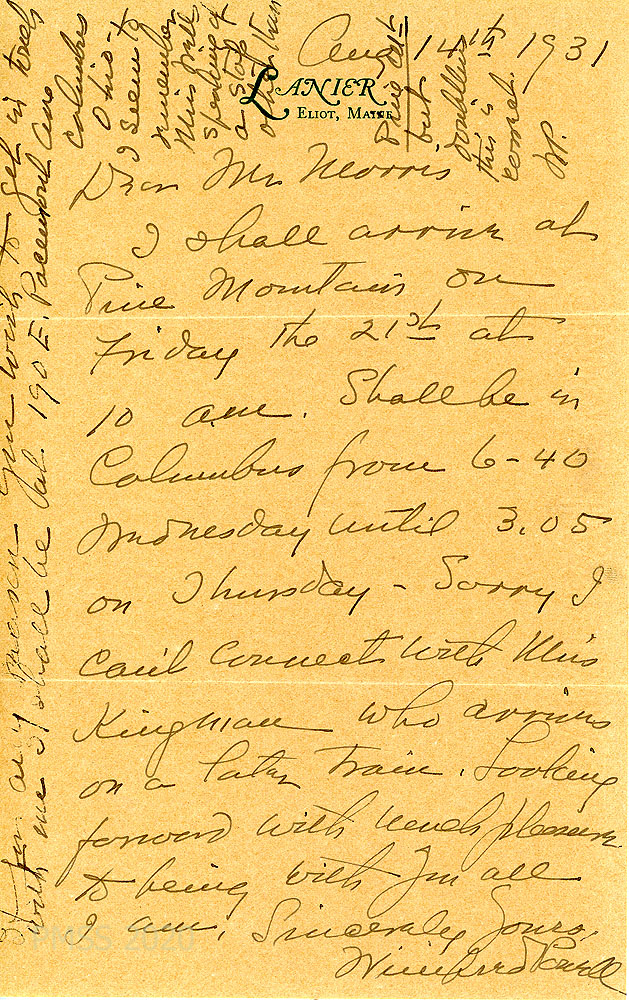 Aug 14th 1931
LANIER
ELIOT, MAINE
Dear Mr Morris
I shall arrive at
Pine Mountain on
Friday the 21st at
10 am. Shall be in
Columbus from 6-40
Wednesday until 3.05
on Thursday - Sorry I
can't connect with Miss
Kingman who arrives
on a later train. Looking
forward with much pleasure
to being with you all
I am, Sincerely Yours,
Winifred Powell
If for any reason you wish to get in touch
with me I shall be at 190 E. Pacemont Ave
Columbus
Ohio -
I seem to
remember
Miss
speaking of
a stop
other than
Pine Mt
but
doubtless
this is
correct.
WP.
PMSS 2020